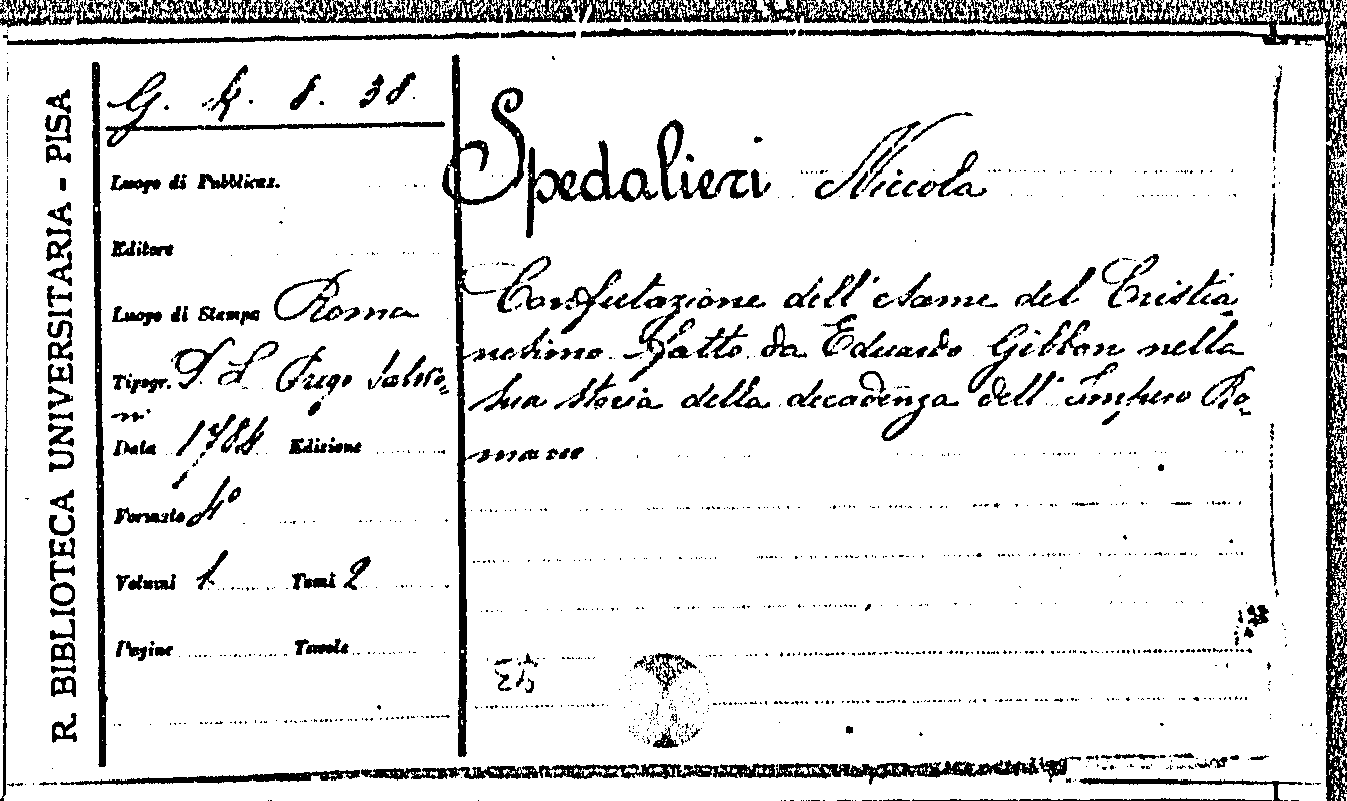 R. BIBLIOTECA UNIVERSITARIA - PISA
G. k. 8. 38.
Luogo di Pubblicaz.
Editore
Luogo di Stampa Roma
Tipogr. Salvio-
ni
Data 1784 Edizione
Formato 4°
Volumi 1 Tomi 2
Pagine Tavole
Spedalieri Niccola
Confutazione dell'esame del Cristia-
nesimo fatto da Eduardo Gibbon nella
sua storia della decadenza dell'Impero Ro-
mano